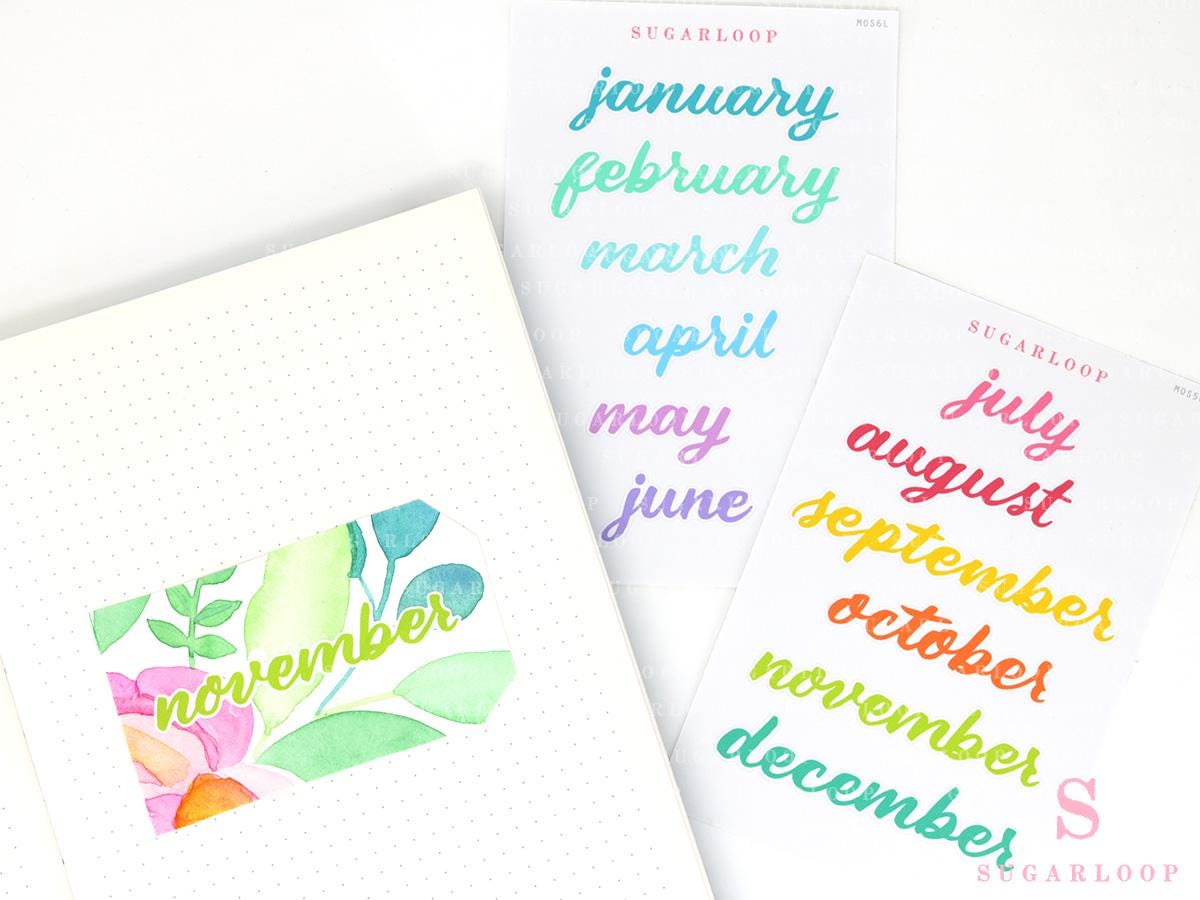 SUGARLOOP
MOS6L
january
february
march
april
may
june
SUGARLOOP
july
august
september
october
november
december
november
S
SUGARLOOP